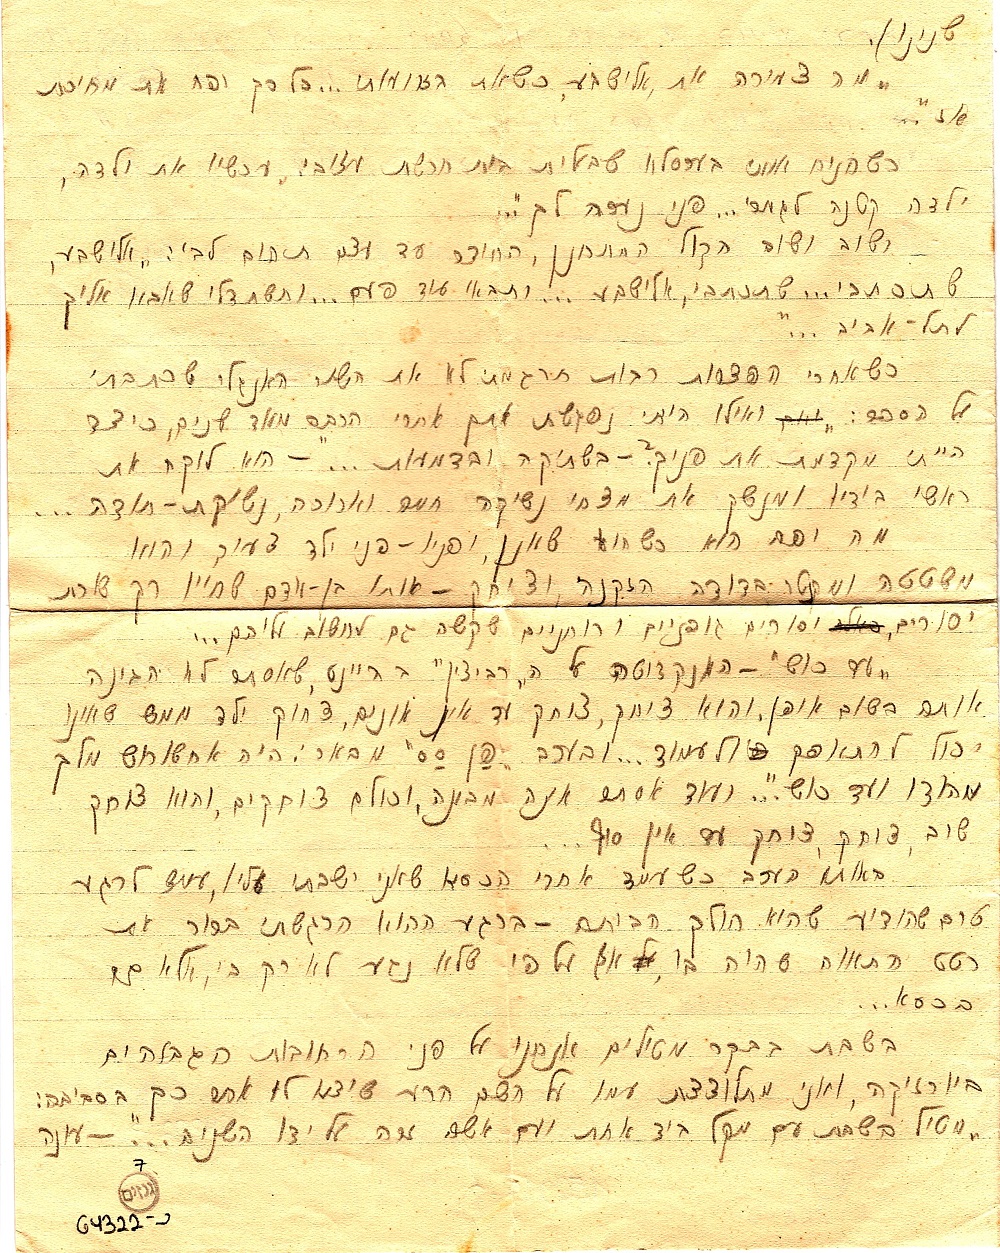 שנינו).
"מה צעירה את, אלישבע, כשאת בזרועותי... כל כך יפה את מחייכת
אז"...
כשהניח אותי בערסלו שבטלית בית חרשת עצובי, עכשיו את ילדה,
ילדה קטנה לגמרי... פני נעשה לך"...
ושוב ושוב הקול המתחנן, החודר עד עצם תהום לבי: "אלישבע,
שתכתבי... שתכתבי, אלישבע ... ותבאי עוד פעם... ותשתדלי שאבוא אליך
לתל-אביב ..."
כשאחרי הפצרות רבות תרגמתי לו את השיר האנגלי שכתבתי
על הספר: "ואילו הייתי נפגשת אתך אחרי הרבה מאד שנים, כיצד
הייתי מקדמת את פניך? – בשתיקה ובדמעות ..." – הוא לוקח את
ראשי בידיו ומנשק את מצחי נשיקה חמה וארוכה, נשיקת-תודה ...
מה יפה הוא כשהוא שאנן, ופניו – פני ילד צעיר, והוא
משטטה ומקטר בדודה הזקנה, וציחק – אותו בן-אדם שחייו רק שורת
יסורים, יסורים גופניים ורוחניים שקשה גם לחשוב עליהם...
"עד כוש" – האנקדוטה על ה"רביצין" בהיינט, שאסתר לא הבינה
אותה בשום אופן, והוא ציחק, צוחק עד אין אונים, צחוק ילד ממש שאינו
יכול להתאפק ולעמוד... ובערב "פַן סַס" מבאר: היה אחשורוש מלך
מהודו ועד כוש"... ועוד אסתר אינה מבינה, וכולם צוחקים, והוא צוחק
שוב, צוחק, צוחק עד אין סוף...
באותו הערב כשעמד אחרי הכסא שאני ישבתי עליו, עמד לרגע
טרם שהודיע שהוא הולך הביתה – ברגע ההוא הרגשתי בסוד את
רטט התאוה שהיה בו, אף על פי שלא נגע לא רק בי, אלא גם
בכסא...
בשבת בבקר מטילים אנחנו על פני הרחובות הגבלהים
ביורזיקה, ואני מתלוצצת עמו על השם הרע שיצא לו אחר כך בסביבה:
"מטיל בשבת עם מקל ביד אחת ועם אשה זרה על ידו השניה..." – עונה
7
גנזים
64322-כ